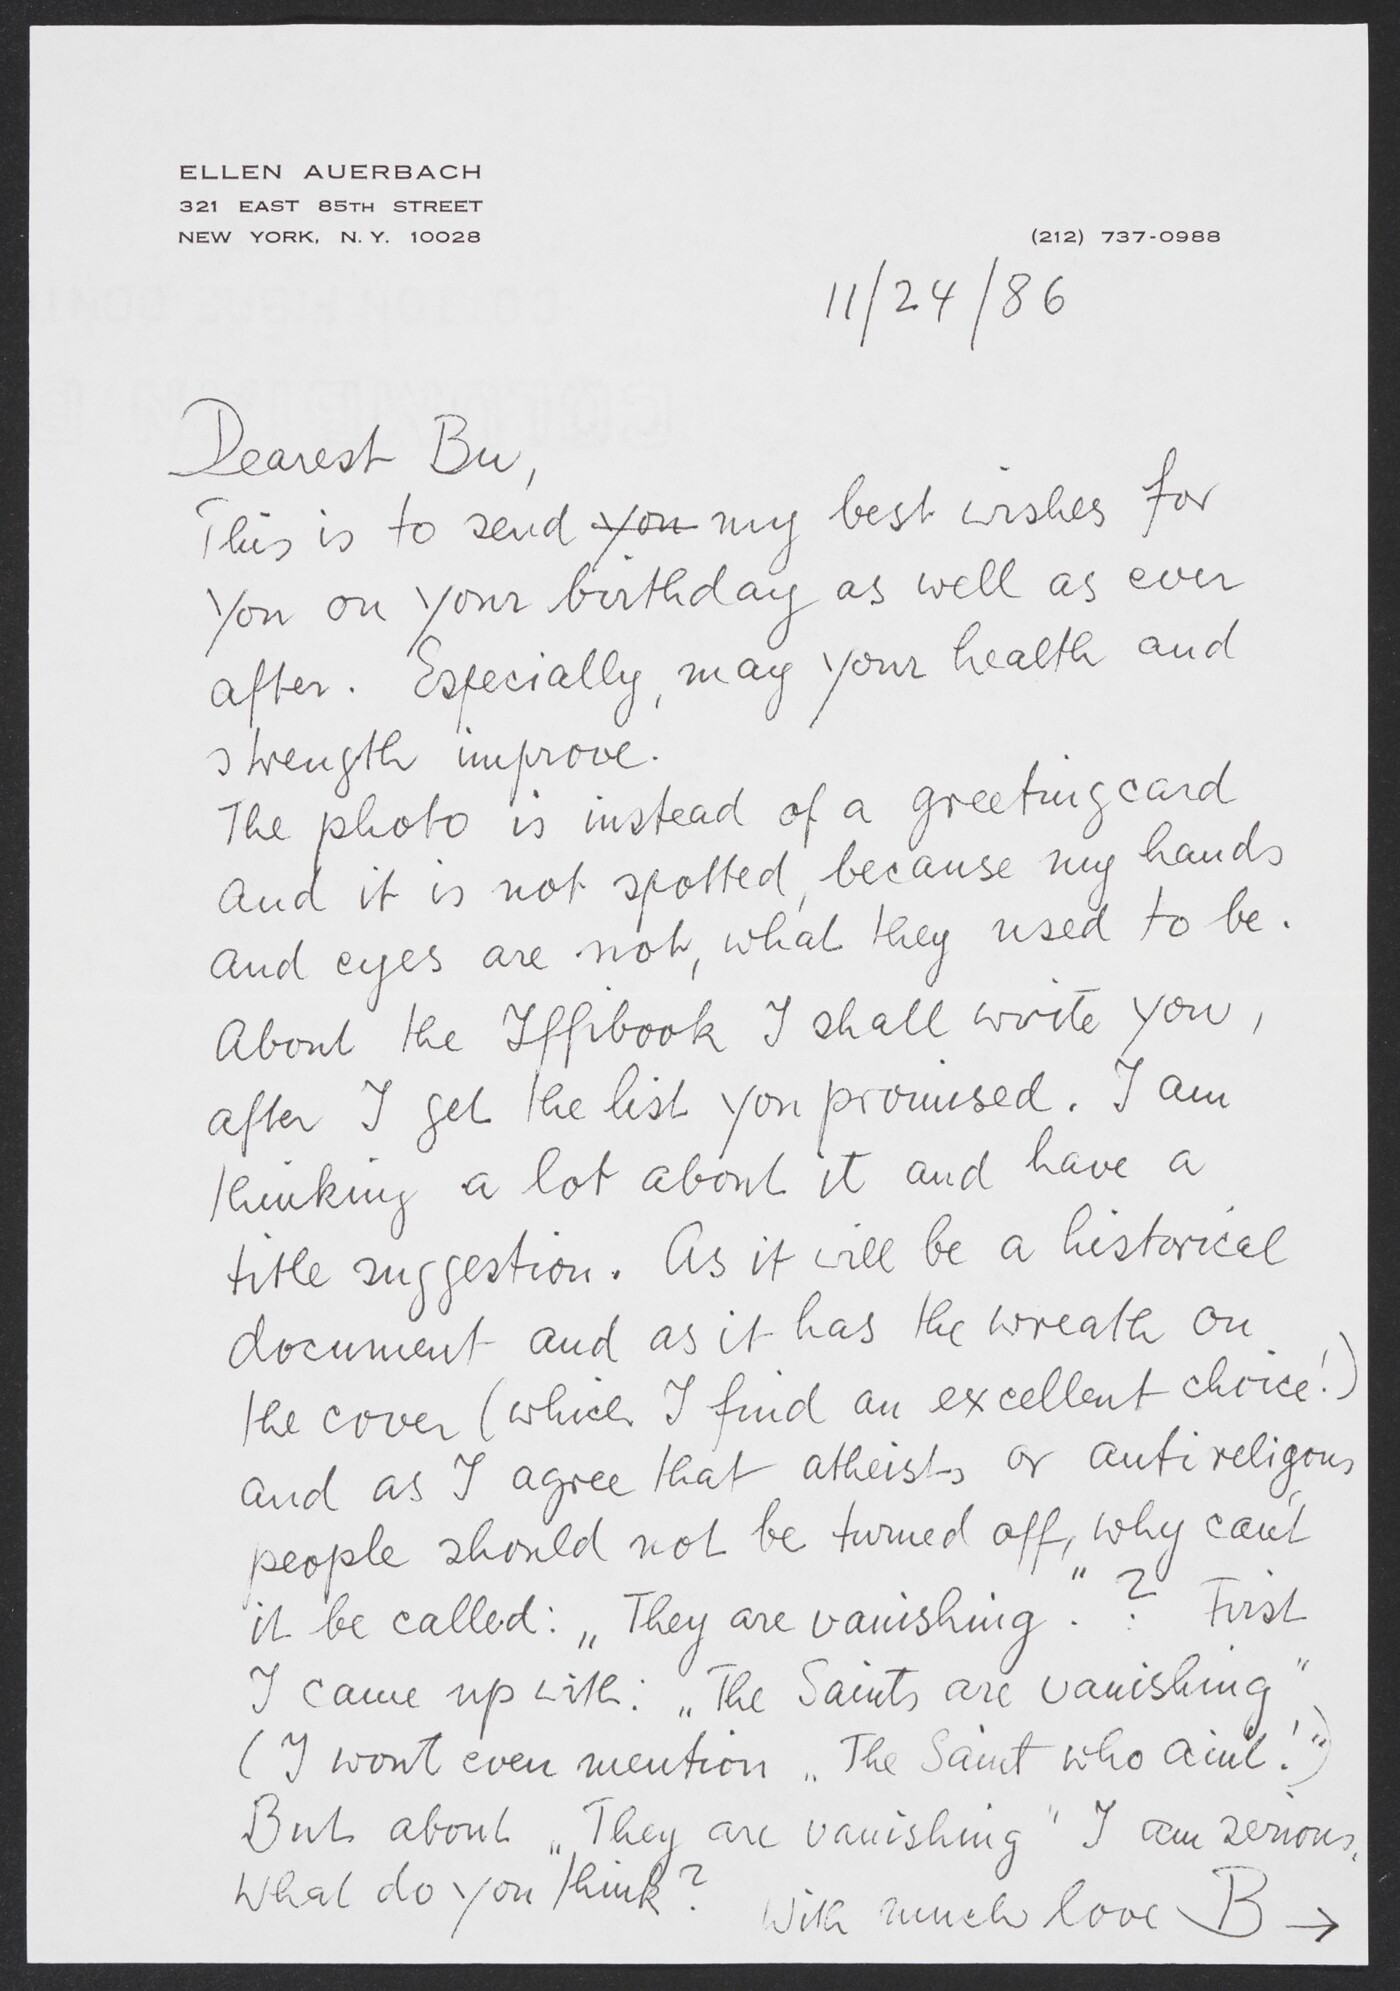 ELLEN AUERBACH
321 EAST 85TH STREET
NEW YORK, N.Y. 10028
(212) 737-0988
11/24/86
Dearest Bu,
This is to send you my best wishes for
you on your birthday as well as ever
after. Especially, may your health and
strength improve.
The photo is instead of a greetingcard
and it is not spotted, because my hands
and eyes are not, what they used to be.
About the Iffibook I shall write you,
after I get the list you promised. I am
thinking a lot about it and have a
title suggestion. As it will be a historical
document and as it has the wreath on
the cover (which I find an excellent choice!)
and as I agree that atheists or antireligous
people should not be turned off, why can't
it be called: „They are vanishing." ? First
I came up with: „The Saints are vanishing"
(I wont even mention „The Saint who aint!")
But about „They are vanishing" I am serious.
What do you think?
With much love B →